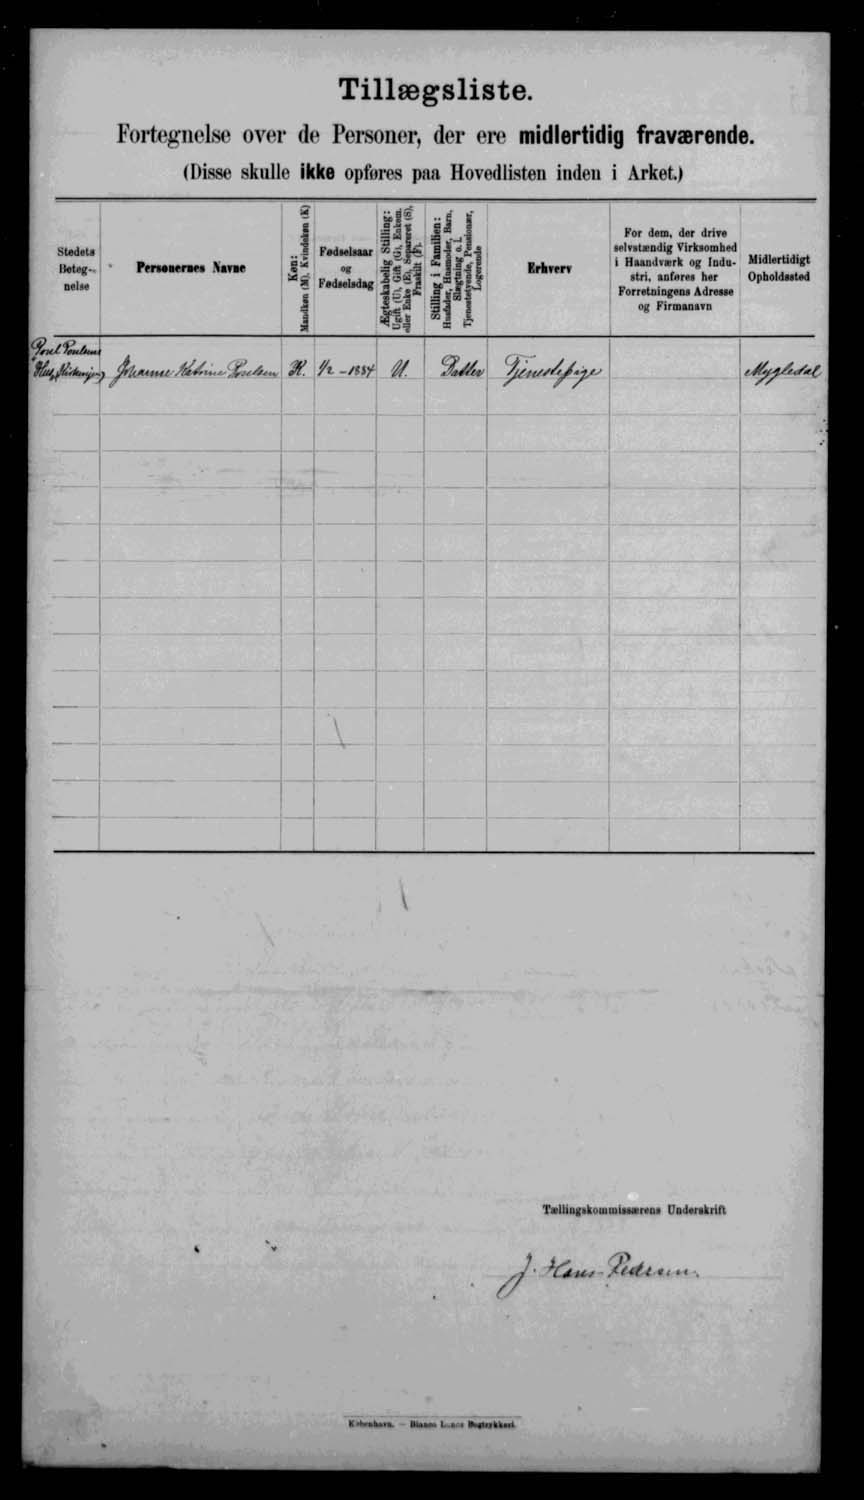 Tillægsliste.
Fortegnelse over de Personer, der ere midlertidig fraværende.
(Disse skulle ikke opføres paa Hovedlisten inden i Arket.)
Stedets
Beteg-
nelse
Personernes Navne
Køn:
Mandkøn (M), Kvindekøn (K)
Fødselsaar
og
Fødselsdag
Ægteskabelig Stilling:
Ugift (U), Gift (G), Enkem.
eller Enke (E), Separeret (S),
Fraskilt (F).
Stilling i Familien:
Husfader, Husmoder, Barn,
Slægtning o. l.
Tjenestetyende, Pensionær,
Logerende
Erhverv
For dem, der drive
selvstændig Virksomhed
i Haandværk og Indu-
stri, anføres her
Forretningens Adresse
og Firmanavn
Midlertidigt
Opholdssted
Poul Poulsens
Hus,
Johanne Katrine Poulsen K. 1/2 - 1884 U. Datter Tjenestepige Mygledal
Tællingskommissærens Underskrift
J. Hans Pedersen.
København. — Bianco Lunos Bogtrykkeri.